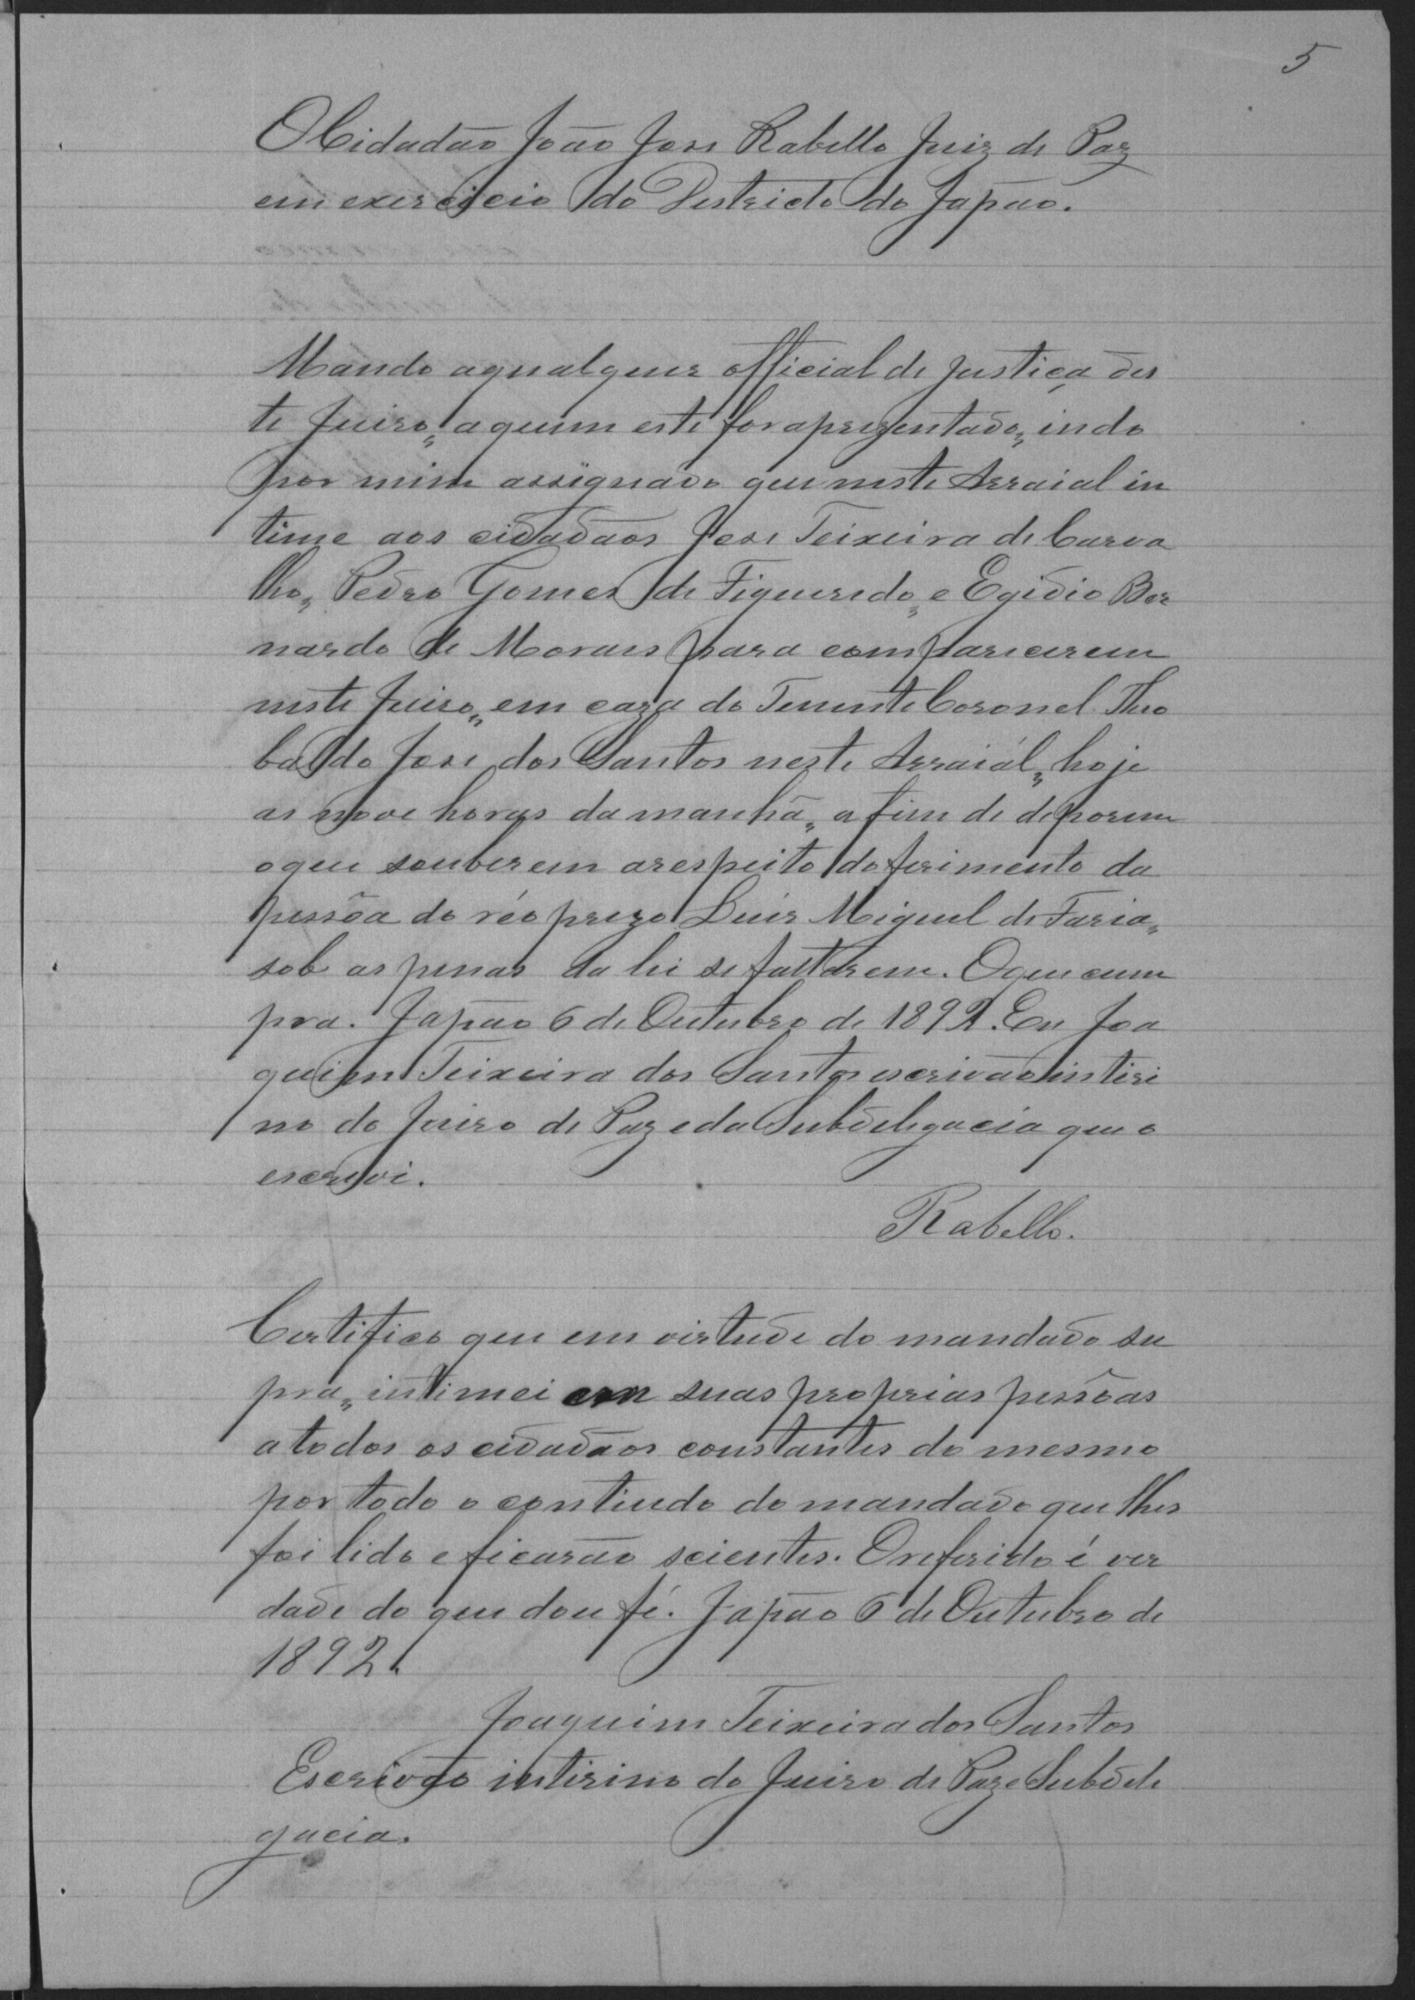 5
O Cidadão João Jose Rabello Juiz de Paz
em exercicio do Destricto do Japão.
Mando aqualquer official de Justiça des
te Juiso, aquem este for aprezentado, indo
por mim assignado que neste Arraial in
time aos cidadãos Jose Teixeira de Carva
lho, Pedro Gomes de Figueredo, e Egidio Ber
nardo de Moraes para comparecerem
neste Juiso, em caza do Tenente Coronel Theo
baldo Jose dos Santos neste Arraiál, hoje
as nove horas da manhã, afim de deporem
oque souberem arespeito do ferimento da
pessôa do réo prezo Luis Miguel de Faria,
sob as penas da lei se faltarem. Oque cum
pra. Japão 6 de Outubro de 1892. Eu Joa
quim Teixeira dos Santos escrivão intiri
no do Juiso de Paz e da Subdelegacia que o
escrevi.
Rabello.
Certifico que em virtude do mandado su
pra, intimei em suas proprias pessôas
a todos os cidadãos constantes do mesmo
por todo o contiudo do mandado que lhes
foi lido e ficarão scientes. Oreferido é ver
dade do que dou fé. Japão 6 de Outubro de
1892.
Joaquim Teixeira dos Santos
Escrivão intirino do Juiso de Paz e Subdele
gacia.